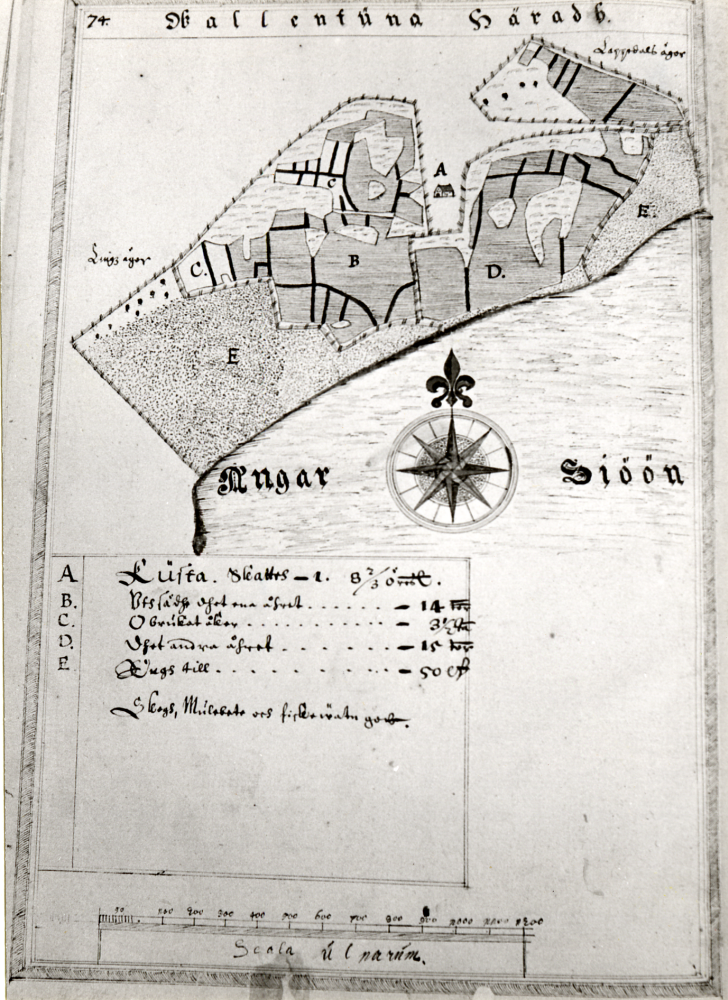 74. Wallentüna Häradh.
Lappedals ägor
A
C
E.
Lings ägor
C.
B
D.
E
Angar Siöön
A. Rüsta. Skattes – 1. 8 2/3
B. Uthsädhe dhet ena åhret . . . . . . – 14
C. Obrukat åker . . . . . . . . . – 3 1/2
D. Dhet andra åhret . . . . . . – 15
E Engs till . . . . . . . . . – 50
Skogs, Mulebete och fiskewatn godt.
50 100 200 300 400 500 600 700 800 1000 1200
Scala ülnarüm.